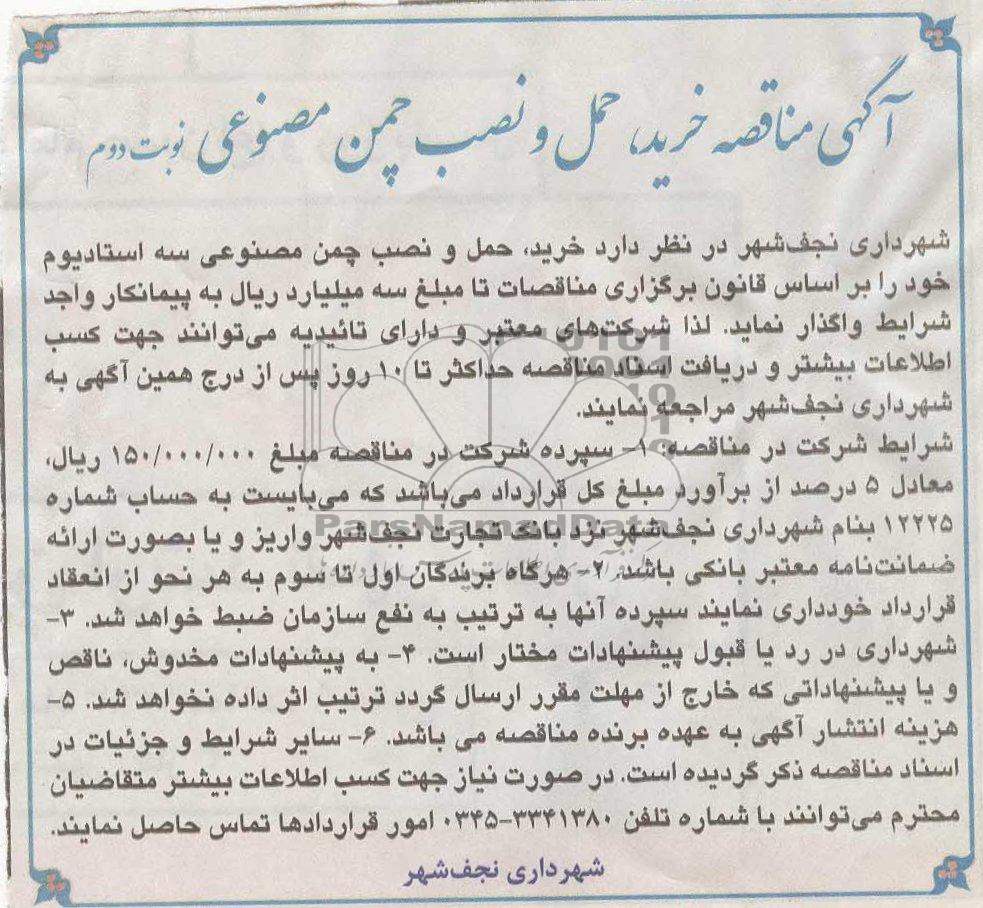 آگهی مناقصه خرید، حمل و نصب چمن مصنوعی نوبت دوم
شهرداری نجف‌شهر در نظر دارد خرید، حمل و نصب چمن مصنوعی سه استادیوم
خود را بر اساس قانون برگزاری مناقصات تا مبلغ سه میلیارد ریال به پیمانکار واجد
شرایط واگذار نماید. لذا شرکت‌های معتبر و دارای تائیدیه می‌توانند جهت کسب
اطلاعات بیشتر و دریافت اسناد مناقصه حداکثر تا ۱۰ روز پس از درج همین آگهی به
شهرداری نجف‌شهر مراجعه نمایند.
شرایط شرکت در مناقصه: ۱- سپرده شرکت در مناقصه مبلغ ۱۵۰/۰۰۰/۰۰۰ ریال،
معادل ۵ درصد از برآورد مبلغ کل قرارداد می‌باشد که می‌بایست به حساب شماره
۱۲۲۲۵ بنام شهرداری نجف‌شهر نزد بانک تجارت نجف‌شهر واریز و یا بصورت ارائه
ضمانت‌نامه معتبر بانکی باشد. ۲- هرگاه برندگان اول تا سوم به هر نحو از انعقاد
قرارداد خودداری نمایند سپرده آنها به ترتیب به نفع سازمان ضبط خواهد شد. ۳-
شهرداری در رد یا قبول پیشنهادات مختار است. ۴- به پیشنهادات مخدوش، ناقص
و یا پیشنهاداتی که خارج از مهلت مقرر ارسال گردد ترتیب اثر داده نخواهد شد. ۵-
هزینه انتشار آگهی به عهده برنده مناقصه می باشد. ۶- سایر شرایط و جزئیات در
اسناد مناقصه ذکر گردیده است. در صورت نیاز جهت کسب اطلاعات بیشتر متقاضیان
محترم می‌توانند با شماره تلفن ۳۳۴۱۳۸۰-۰۳۴۵ امور قراردادها تماس حاصل نمایند.
شهرداری نجف‌شهر
ParsNamadData